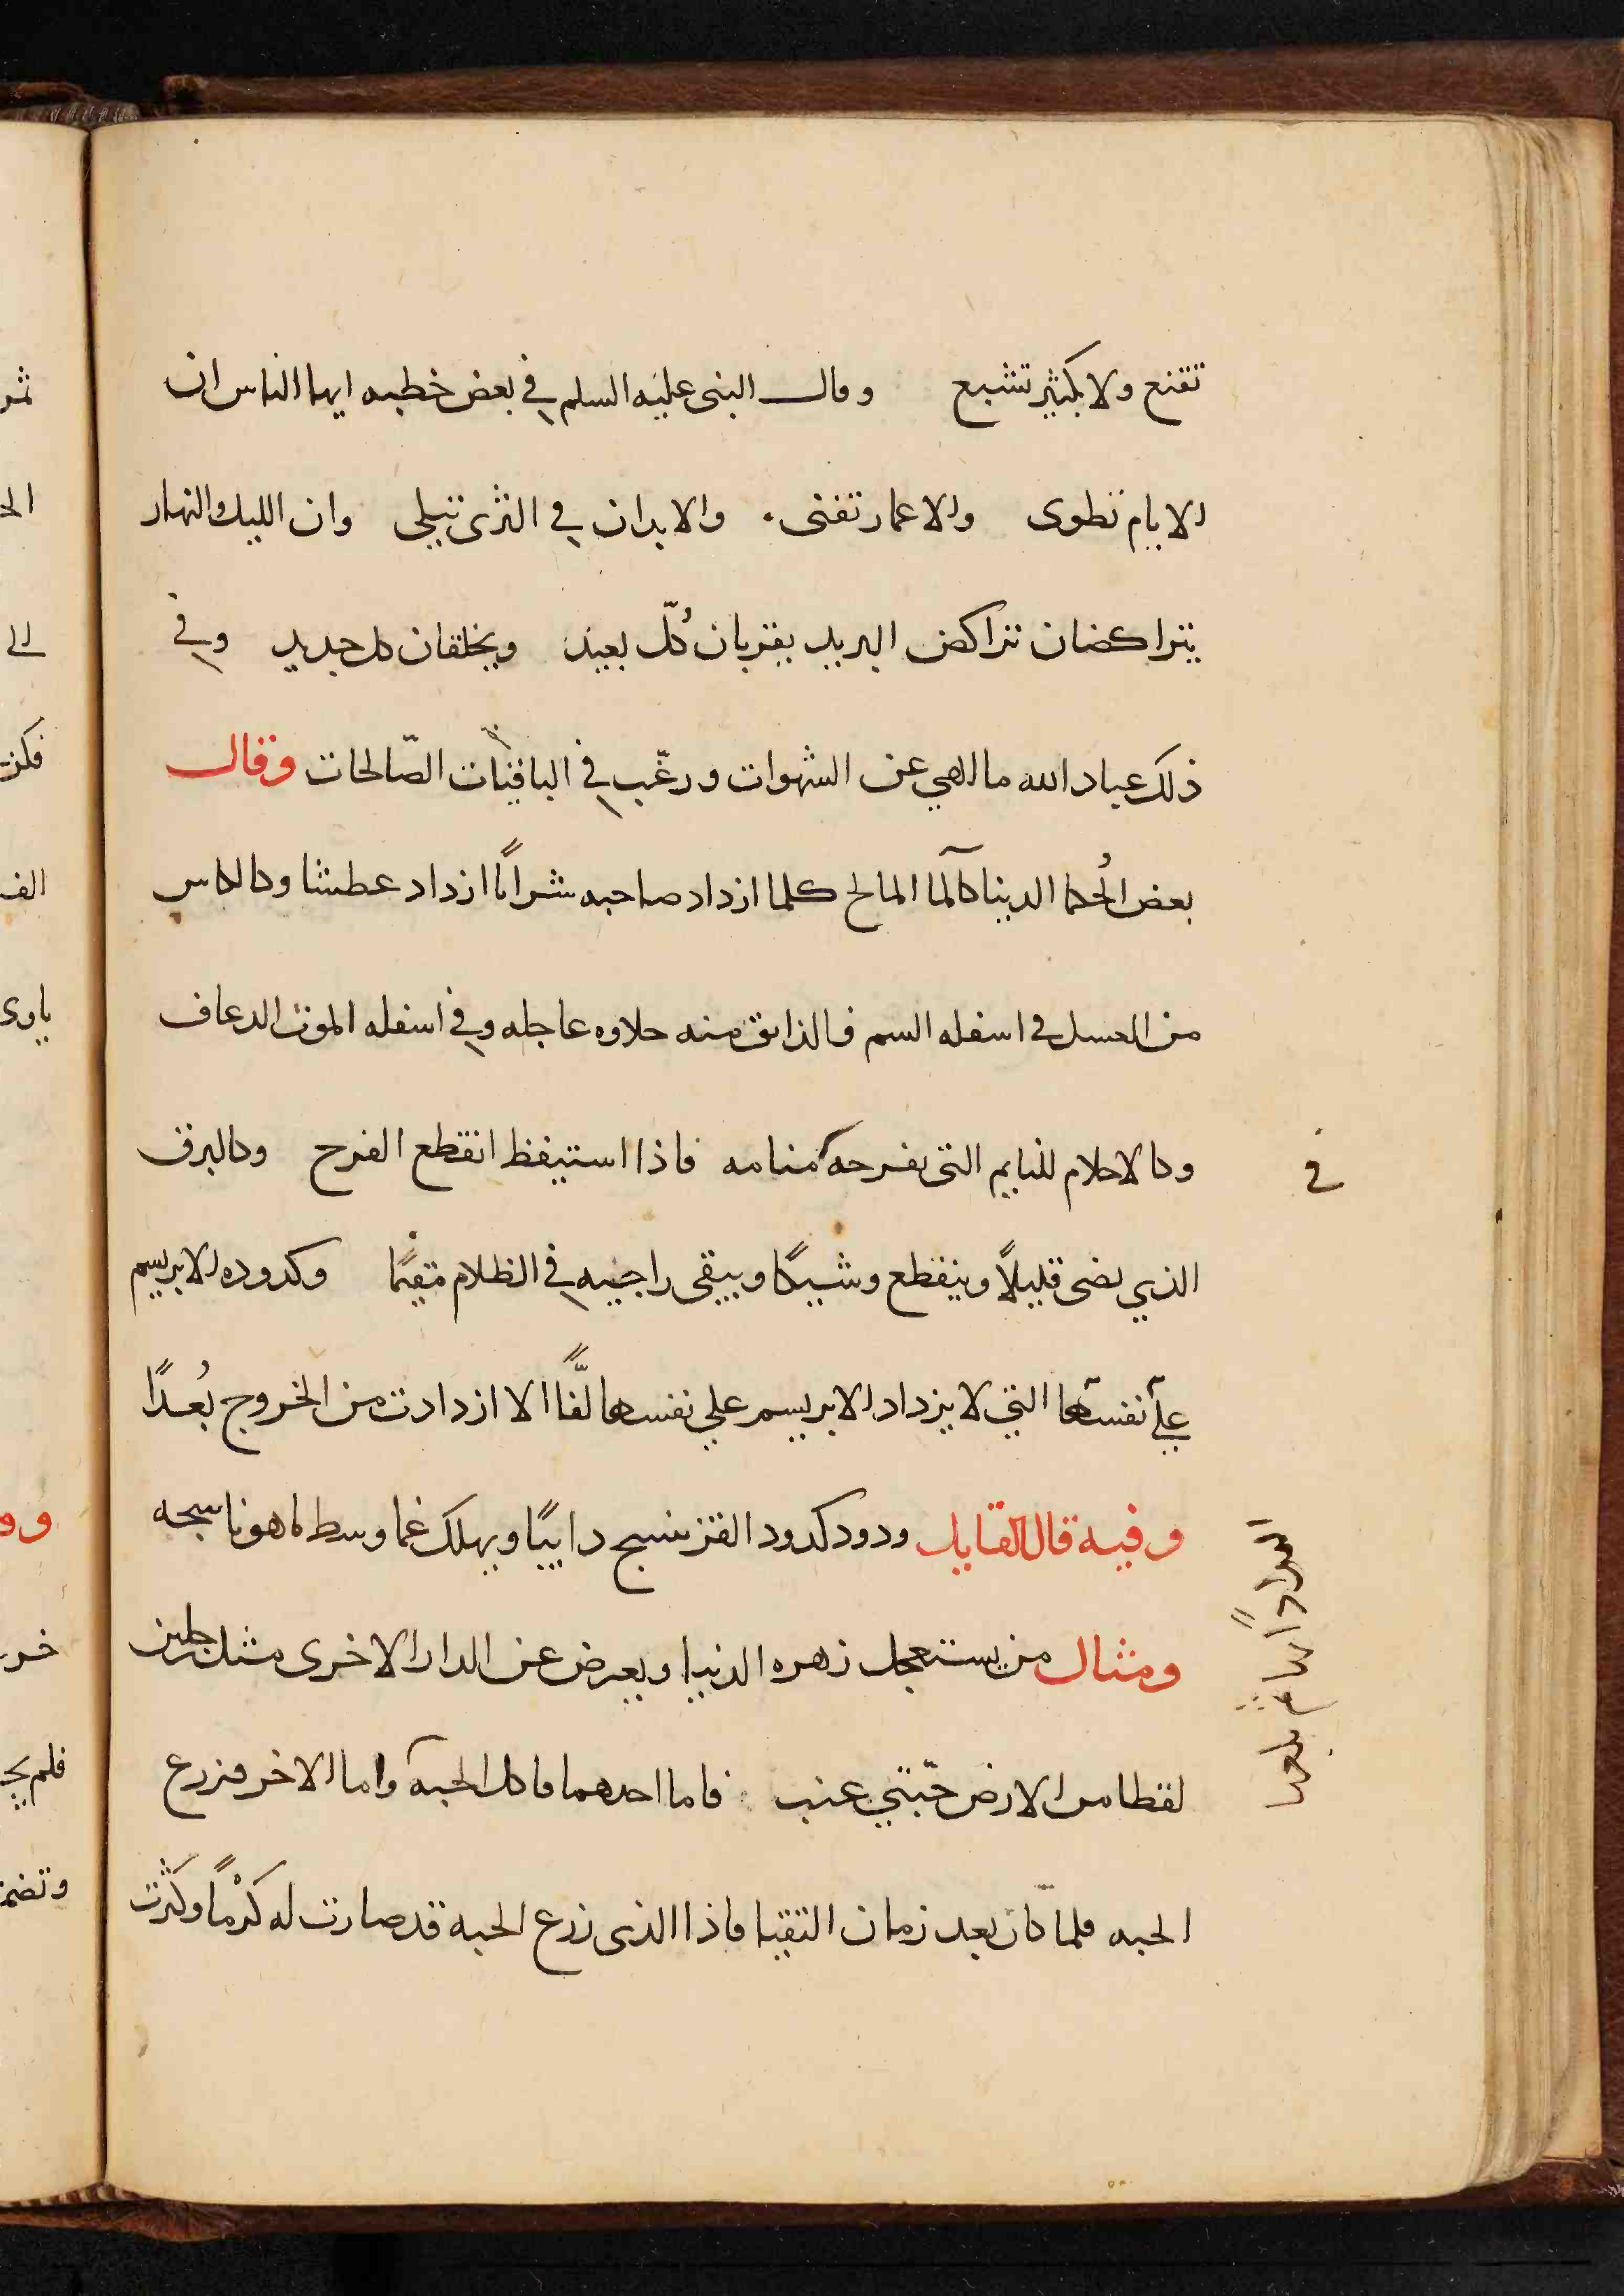 تقنع ولا بكثير تشبع وقال النبى عليه السلم في بعض خطبه ايها الناس ان
الايام تطوى والاعمار تفنى. والابدان في الثرى تبلى وان الليل والنهار
يتراكضان تراكض البريد يقربان كُلّ بعيد ويخلقان كل جديد وفي
ذلك عباد الله ما الهي عن الشهوات ورغّب في الباقيات الصّالحات وقال
بعض الحُكما الدنيا كالمآ المالح كلما ازداد صاحبه شراباً ازداد عطشا وكالكاس
من العسل في اسفله السم فالذائق منه حلاوه عاجله وفي اسفله الموت الدعاف
وكالاحلام للنايم التى تفرحه منامه فاذا استيقظ انقطع الفرح وكالبرق
الذي يضى قليلاً وينقطع وشيكاً ويبقى راجيه في الظلام مقيماً وكدوده الابريسم
علي نفسها التي لا يزداد الابريسم علي نفسها لفّاً الا ازدادت من الخروج بُعداً
وفيه قال القايل ودود كدود القز ينسج دايباً ويهلك غما وسط ما هو ناسجه
ومثال من يستعجل زهره الدنيا ويعرض عن الدار الاخرى مثل رجلين
لقطا من الارض حبّتي عنب فاما احدهما فاكل الحبه واما الاخر فزرع
الحبه فلما كان بعد زمان التقيا فاذا الذى زرع الحبه قد صارت له كَرْماً وكَثُرت
في